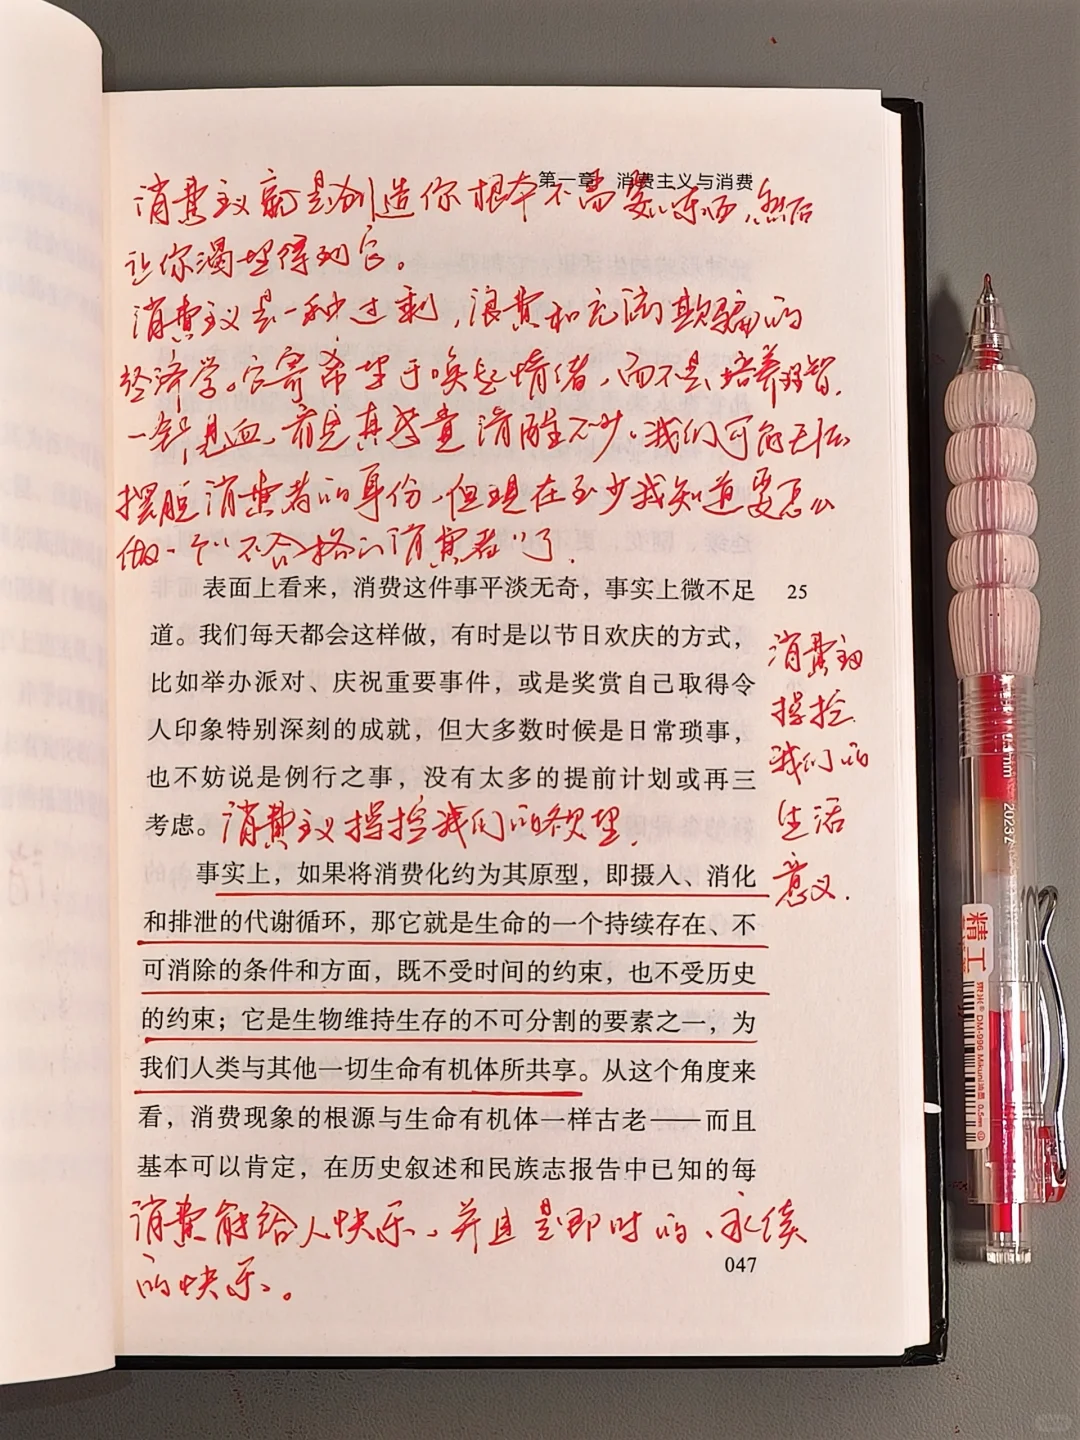 第一章 消费主义与消费
消费主义就是创造你根本不需要的东西,然后
让你渴望得到它。
消费主义是一种过剩,浪费和充满欺骗的
经济学。它寄希望于唤起情绪,而不是培养理智。
一针见血,看完真感觉清醒不少。我们可能无法
摆脱消费者的身份,但现在至少我知道要怎么
做一个“不合格的消费者”了.
表面上看来,消费这件事平淡无奇,事实上微不足
25
道。我们每天都会这样做,有时是以节日欢庆的方式,
比如举办派对、庆祝重要事件,或是奖赏自己取得令
人印象特别深刻的成就,但大多数时候是日常琐事,
也不妨说是例行之事,没有太多的提前计划或再三
考虑。
消费主义操控我们的欲望.
消费主义
操控
我们的
生活
意义.
事实上,如果将消费化约为其原型,即摄入、消化
和排泄的代谢循环,那它就是生命的一个持续存在、不
可消除的条件和方面,既不受时间的约束,也不受历史
的约束;它是生物维持生存的不可分割的要素之一,为
我们人类与其他一切生命有机体所共享。从这个角度来
看,消费现象的根源与生命有机体一样古老——而且
基本可以肯定,在历史叙述和民族志报告中已知的每
消费能给人快乐,并且是即时的、永续
的快乐。
047
0.5mm 2023.2
精工
DM-996